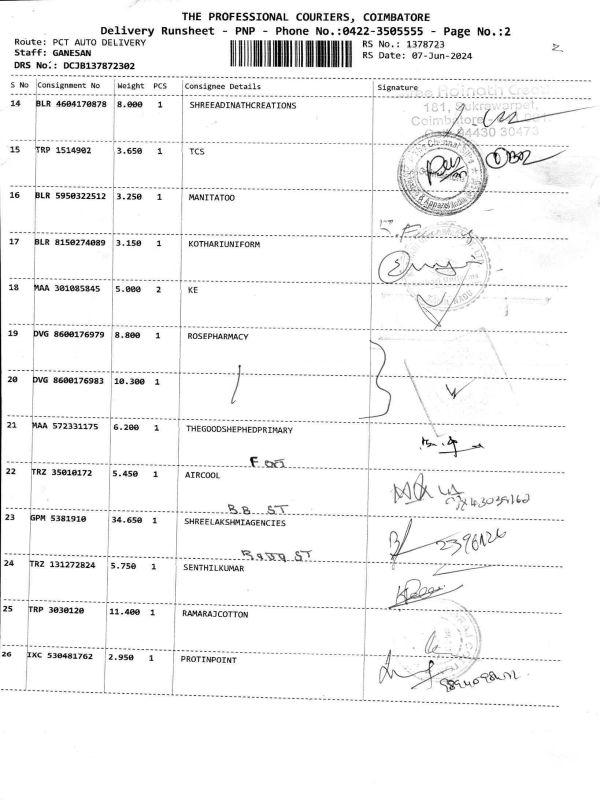 THE PROFESSIONAL COURIERS, COIMBATORE
Delivery Runsheet - PNP - Phone No.:0422-3505555 - Page No.:2
Route: PCT AUTO DELIVERY
Staff: GANESAN
DRS No.: DCJB137872302
RS No.: 1378723
RS Date: 07-Jun-2024
2
S No Consignment No Weight PCS Consignee Details Signature
14 BLR 4604170878 8.000 1 SHREEADINATHCREATIONS
181, Sukrawarpet,
Coimbatore
04430 30473
15 TRP 1514902 3.650 1 TCS
16 BLR 5950322512 3.250 1 MANITATOO
17 BLR 8150274089 3.150 1 KOTHARIUNIFORM
18 MAA 301085845 5.000 2 KE
19 DVG 8600176979 8.800 1 ROSEPHARMACY
20 DVG 8600176983 10.300 1
21 MAA 572331175 6.200 1 THEGOODSHEPHEDPRIMARY
22 TRZ 35010172 5.450 1 AIRCOOL
BB ST
23 GPM 5381910 34.650 1 SHREELAKSHMIAGENCIES
2396126
ST
24 TRZ 131272824 5.750 1 SENTHILKUMAR
25 TRP 3030120 11.400 1 RAMARAJCOTTON
26 IXC 530481762 2.950 1 PROTINPOINT